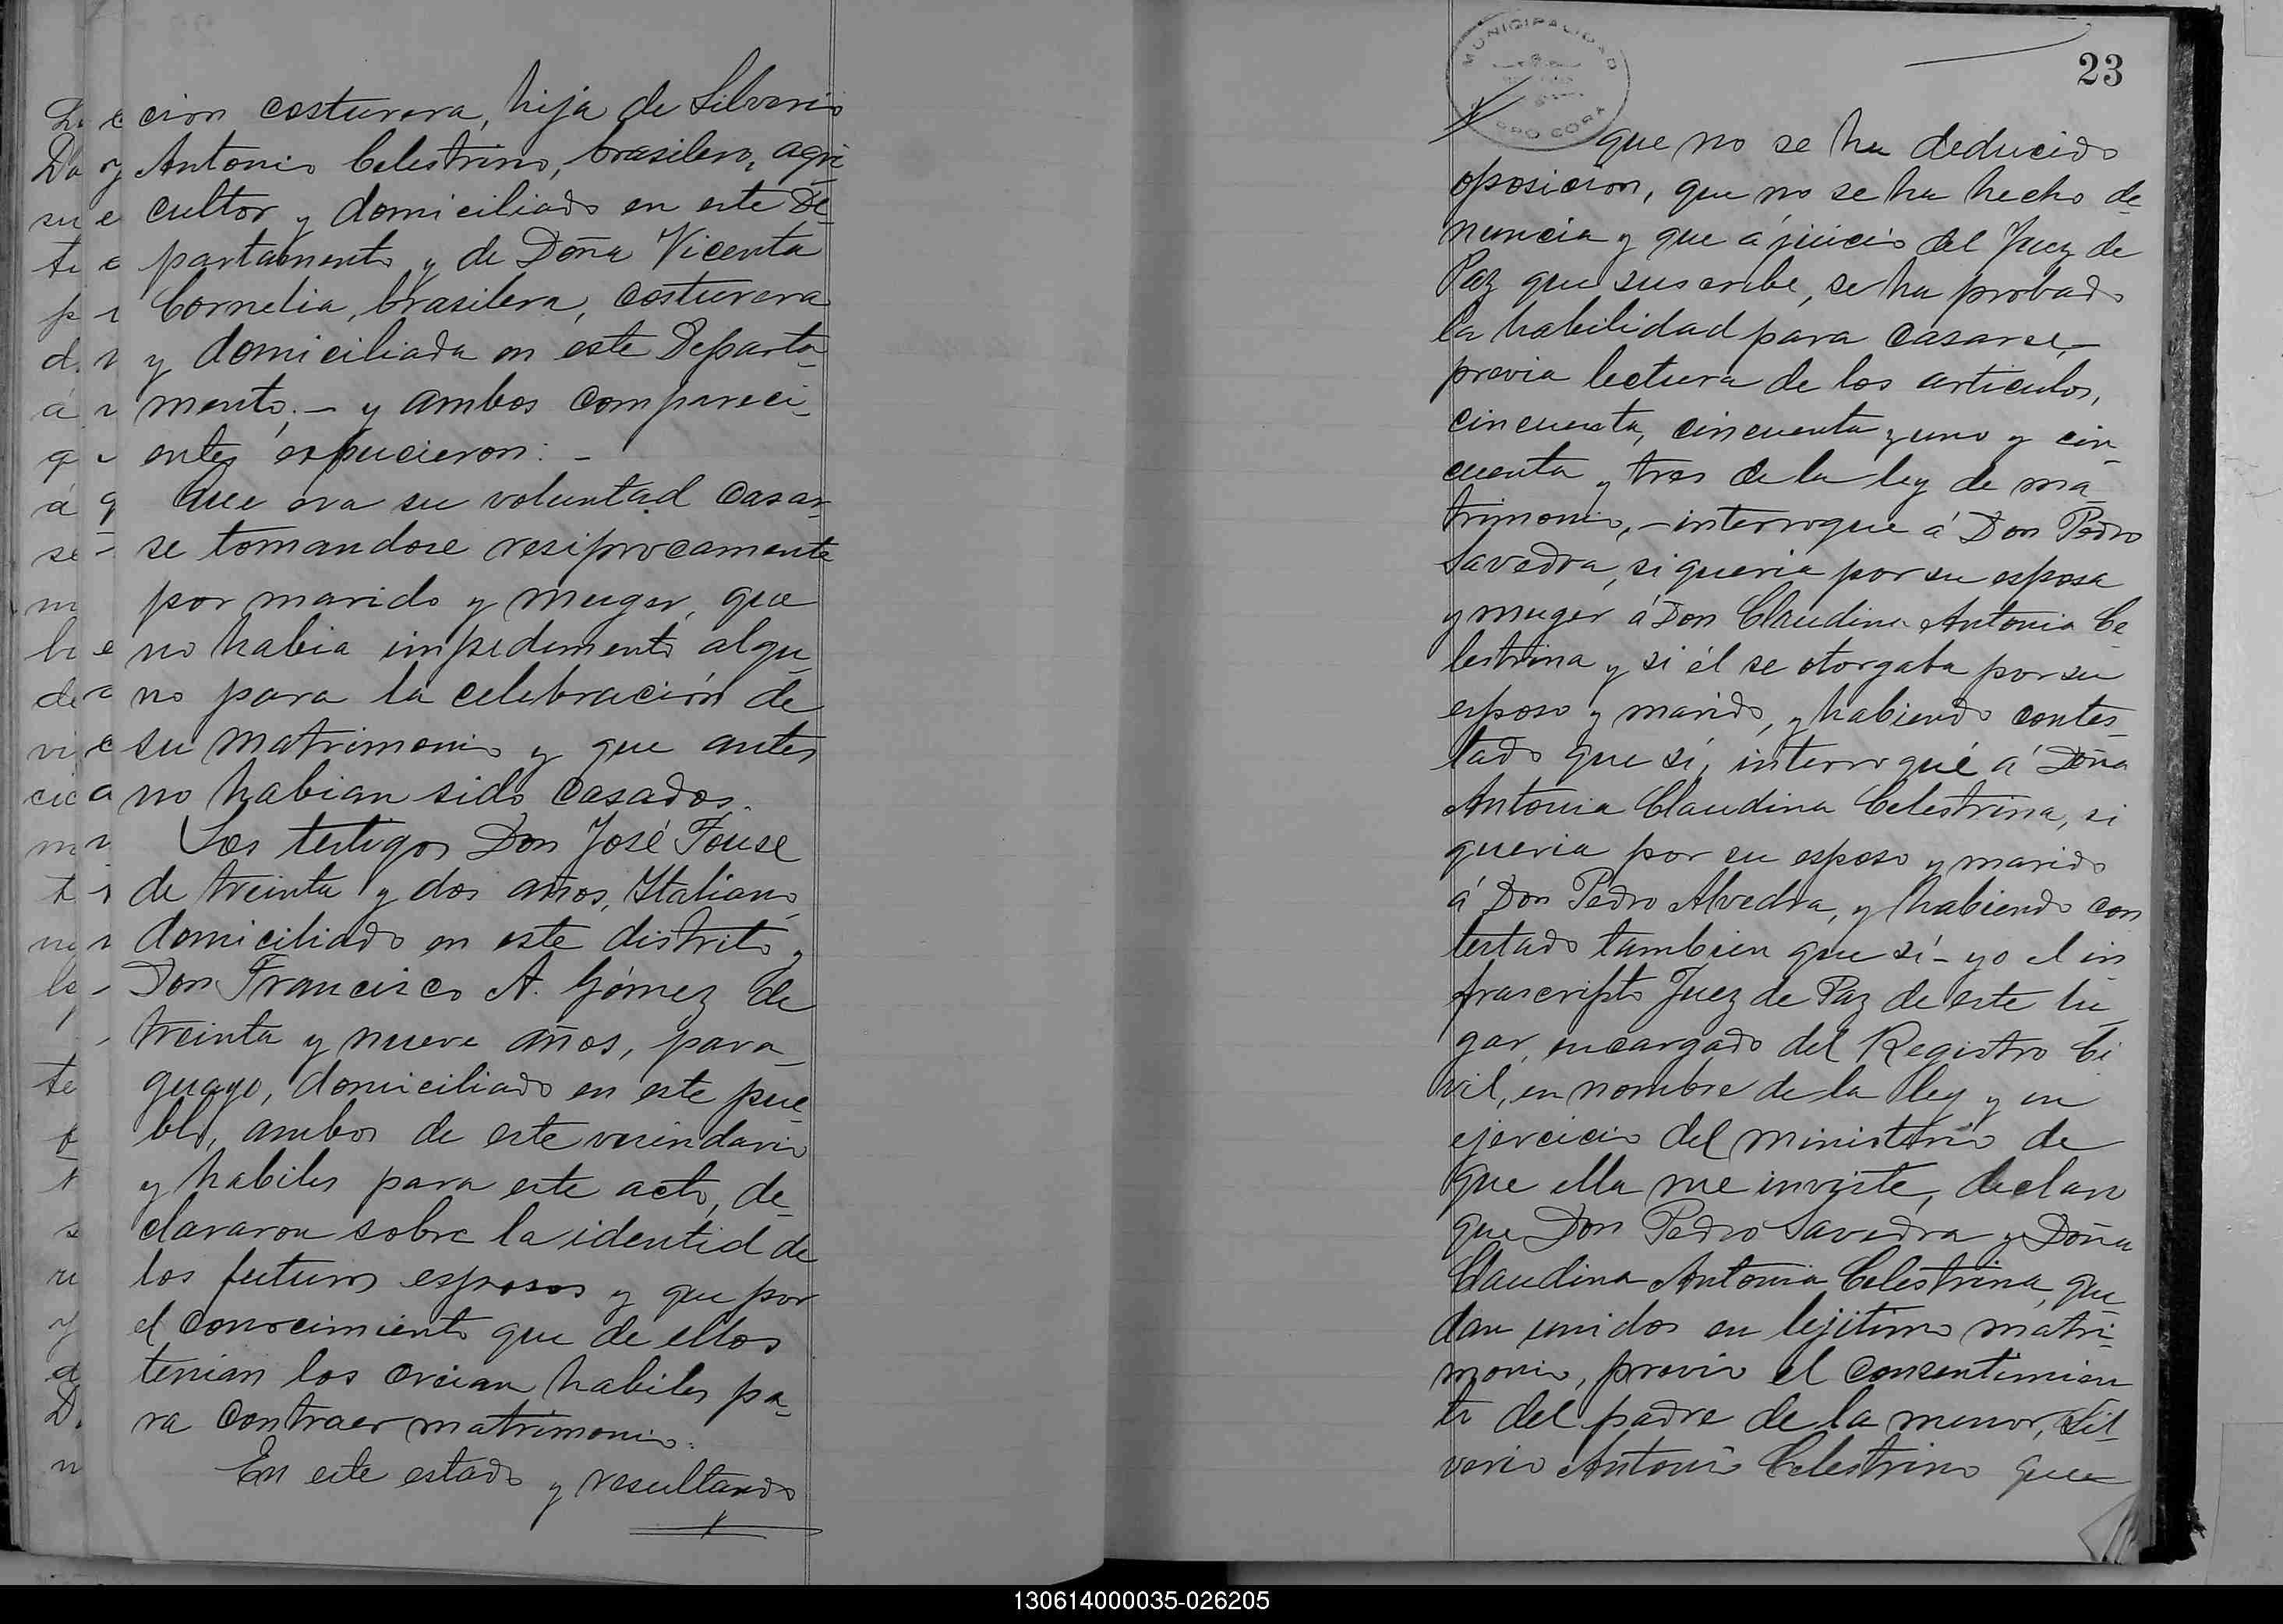 cion costurera, hija de Silverio
Antonio Celestrino, brasilero, agri
cultor y domiciliado en este De-
partamento y de Doña Vicenta
Cornelia, brasilera, costurera
y domiciliada en este Departa-
mento; - y ambos compareci-
entes espucieron: -
Que era su voluntad casar-
se tomandose resiprocamente
por marido y muger, que
no habia impedimento algu-
no para la celebración de
su matrimonio y que antes
no habian sido casados.
Los testigos Don José Fouse
de treinta y dos años, Italiano
domiciliado en este distrito y
Don Francisco A. Gómez de
treinta y nueve años, para-
guayo, domiciliado en este pue
blo, ambos de este vecindario
y habiles para este acto, de-
clararon sobre la identid de
los futuros esposos y que por
el conocimiento que de ellos
tenian los creian habiles pa-
ra contraer matrimonio.
En este estado y resultando
23
MUNICIPALIDAD
CORA
que no se ha deducido
oposicion, que no se ha hecho de-
nuncia y que á juicio del Juez de
Paz que suscribe, se ha probado
la habilidad para casarse, -
previa lectura de los articulos,
cincuenta, cincuenta y uno y cin-
cuenta y tres de la ley de ma-
trimonio, - interrogue á Don Pedro
Savedra, si queria por su esposa
y muger á Don Claudina Antonia Ce
lestrina y si él se otorgaba por su
esposo y marido, y habiendo contes-
tado que sí, interrogué á Doña
Antonia Claudina Celestrina, si
queria por su esposo y marido
á Don Pedro Alvedra, y habiendo con
testado tambien que sí - yo el in
frascripto Juez de Paz de este lu-
gar, encargado del Registro Ci
vil, en nombre de la ley y en
ejercicio del ministerio de
que ella me inviste, declaro
que Don Pedro Savedra y Doña
Claudina Antonia Celestrina, que-
dan unidos en lejitimo matri-
monio, previo el consentimien
to del padre de la menor, Sil-
verio Antonio Celestrino que
130614000035-026205